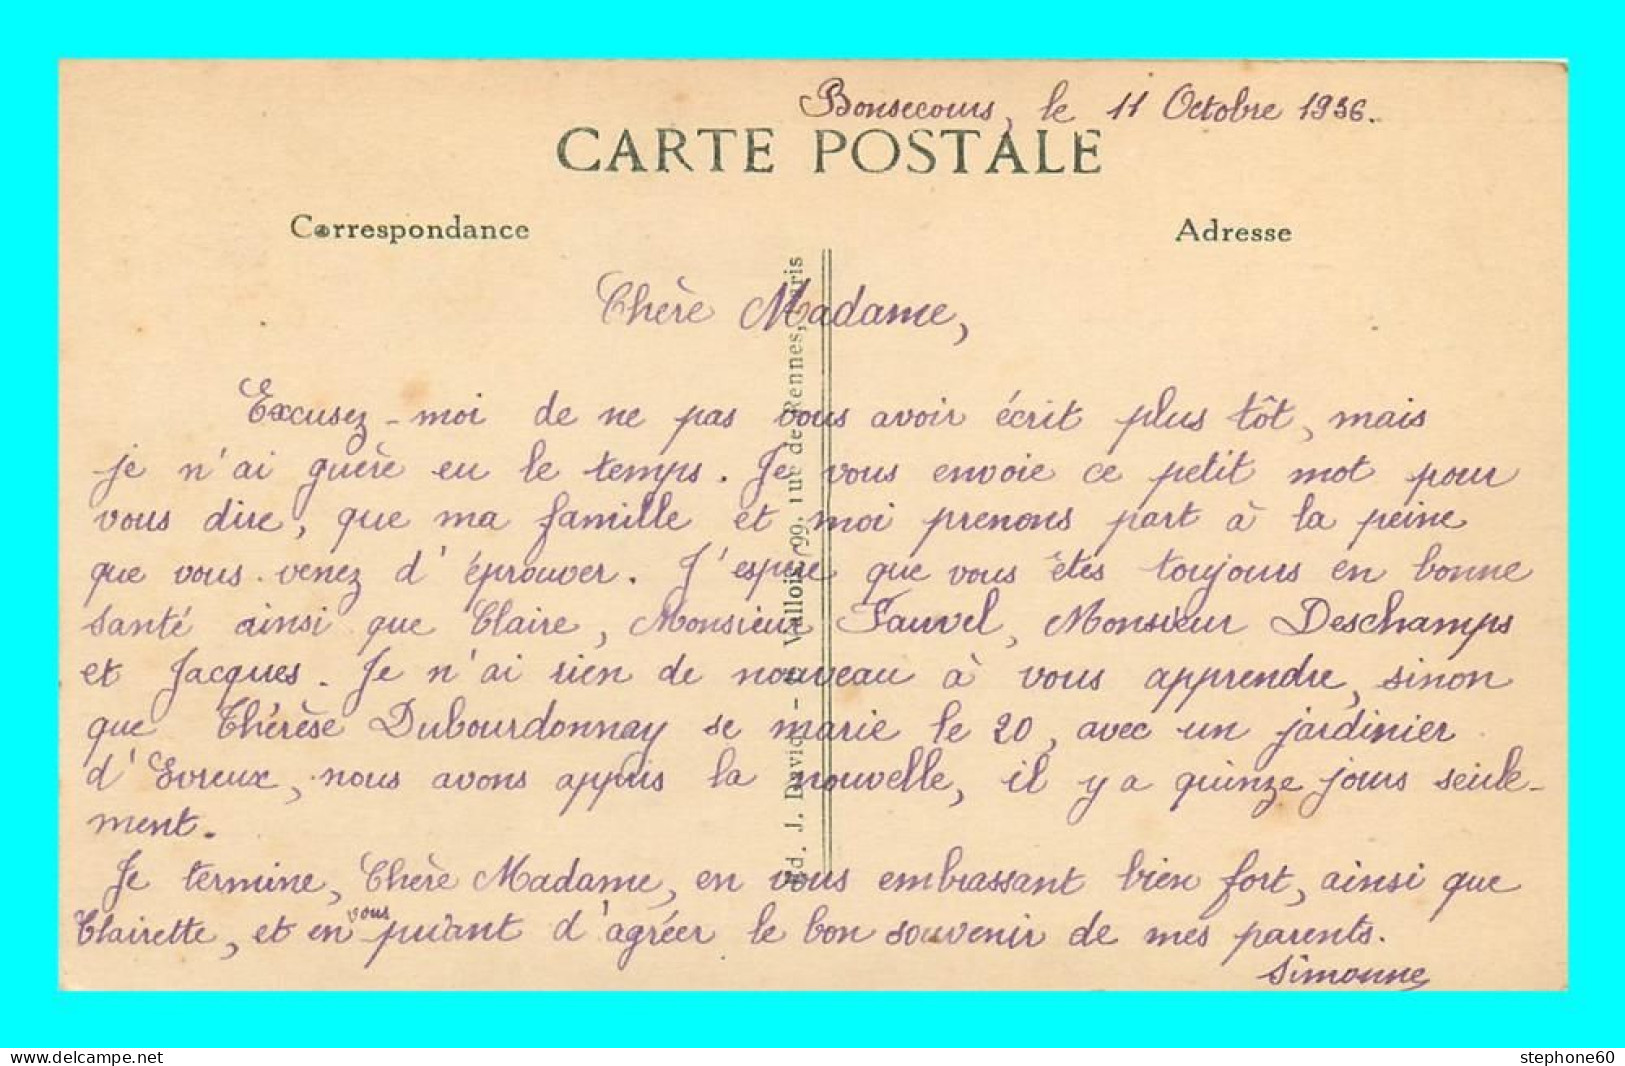 Bonsecours, le 11 Octobre 1936.
CARTE POSTALE
Correspondance
Adresse
Chère Madame,
Excusez-moi de ne pas vous avoir écrit plus tôt, mais
je n'ai guère eu le temps. Je vous envoie ce petit mot pour
vous dire, que ma famille et moi prenons part à la peine
que vous venez d'éprouver. J'espère que vous êtes toujours en bonne
santé ainsi que Claire, Monsieur Fauvel, Monsieur Deschamps
et Jacques. Je n'ai rien de nouveau à vous apprendre, sinon
que Thérèse Dubourdonnay se marie le 20, avec un jardinier
d'Evreux, nous avons appris la nouvelle, il y a quinze jours seule-
ment.
Je termine, Chère Madame, en vous embrassant bien fort, ainsi que
Clairette, et en vous priant d'agréer le bon souvenir de mes parents.
Simonne
Ed. J. David - E. Vallois, 99, rue de Rennes, Paris
stephone60